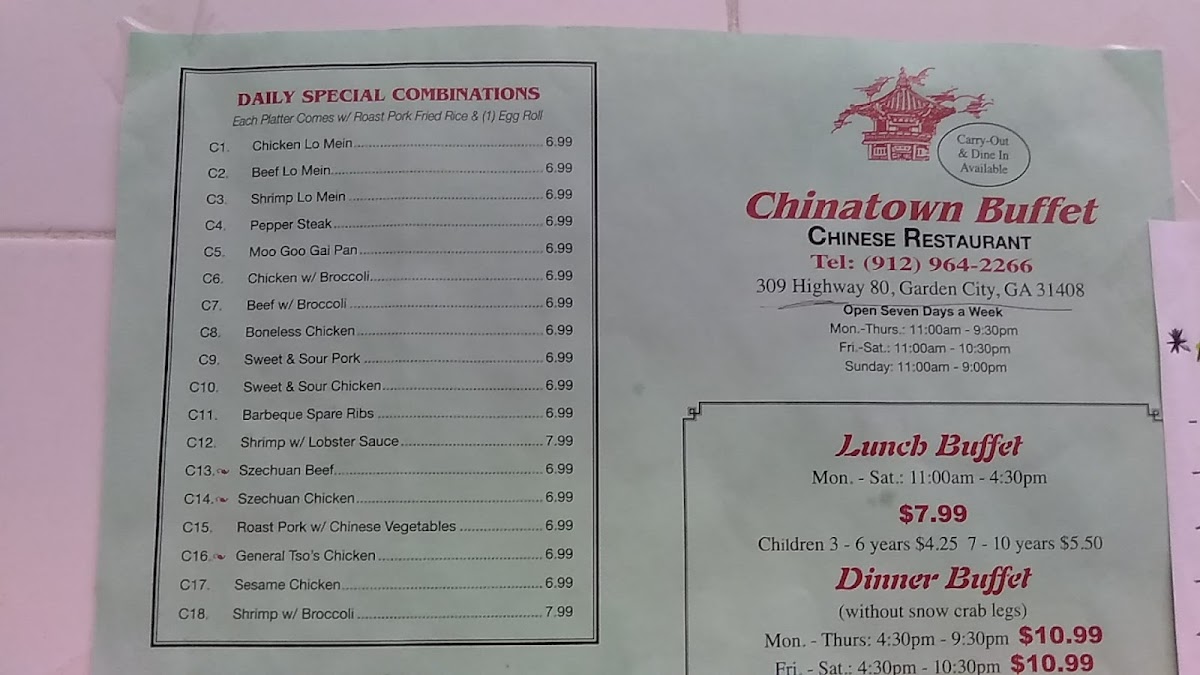 DAILY SPECIAL COMBINATIONS
Each Platter Comes w/ Roast Pork Fried Rice & (1) Egg Roll
C1. Chicken Lo Mein 6.99
C2. Beef Lo Mein 6.99
C3. Shrimp Lo Mein 6.99
C4. Pepper Steak 6.99
C5. Moo Goo Gai Pan 6.99
C6. Chicken w/ Broccoli 6.99
C7. Beef w/ Broccoli 6.99
C8. Boneless Chicken 6.99
C9. Sweet & Sour Pork 6.99
C10. Sweet & Sour Chicken 6.99
C11. Barbeque Spare Ribs 6.99
C12. Shrimp w/ Lobster Sauce 7.99
C13. Szechuan Beef 6.99
C14. Szechuan Chicken 6.99
C15. Roast Pork w/ Chinese Vegetables 6.99
C16. General Tso's Chicken 6.99
C17. Sesame Chicken 6.99
C18. Shrimp w/ Broccoli 7.99
Carry-Out
& Dine In
Available
Chinatown Buffet
CHINESE RESTAURANT
Tel: (912) 964-2266
309 Highway 80, Garden City, GA 31408
Open Seven Days a Week
Mon.-Thurs.: 11:00am - 9:30pm
Fri.-Sat.: 11:00am - 10:30pm
Sunday: 11:00am - 9:00pm
Lunch Buffet
Mon. - Sat.: 11:00am - 4:30pm
$7.99
Children 3 - 6 years $4.25 7 - 10 years $5.50
Dinner Buffet
(without snow crab legs)
Mon. - Thurs: 4:30pm - 9:30pm $10.99
Fri. - Sat.: 4:30pm - 10:30pm $10.99